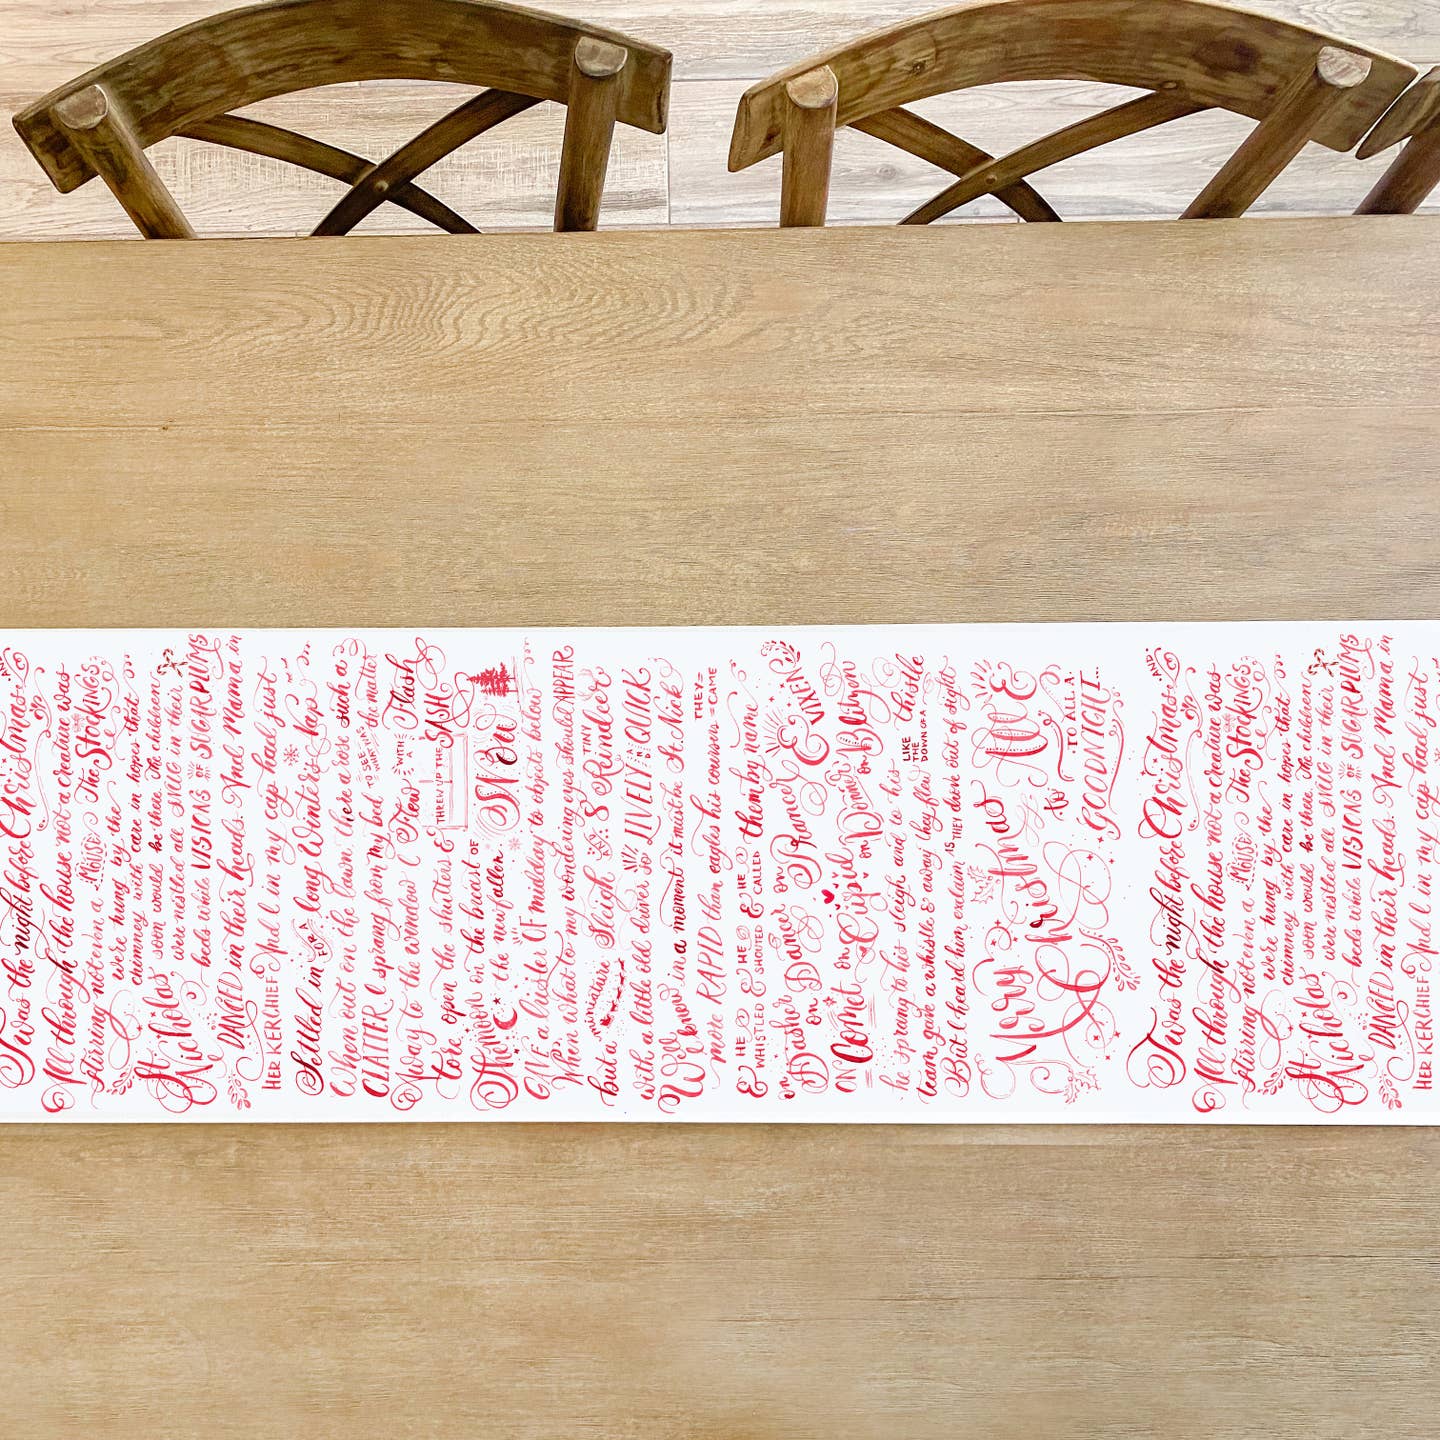 Twas the night before Christmas AND
All through the house not a creature was
stirring not even a MOUSE The STOCKINGS
were hung by the
chimney with care in hopes that
St. Nicholas soon would be there The children
were nestled all SNUG in their
beds while VISIONS OF SUGARPLUMS
DANCED in their heads. And Mama in
HER KERCHIEF And I in my cap had just
Settled in FOR A long Winter's nap
When out on the lawn there arose such a
CLATTER I sprang from my bed TO SEE WHAT WAS the matter
Away to the window I Flew WITH A Flash
tore open the shutters & THREW UP THE SASH
The moon on the breast OF
the new fallen SNOW
GIVE a luster OF midday to objects below
When what to my wondering eyes should APPEAR
but a miniature Sleigh AND 8 TINY Reindeer
with a little old driver so LIVELY AND QUICK
We know in a moment it must be St. Nick
more RAPID than eagles his coursers THEY CAME
& HE WHISTLED & HE SHOUTED & HE CALLED them by name
on Dasher on Dancer on Prancer & VIXEN
ON Comet on Cupid on Donner on Blitzen
he sprang to his sleigh and to his
team gave a whistle & away they flew LIKE THE DOWN OF A thistle
But I heard him exclaim AS THEY drove out of sight
Merry Christmas to All &
to TO ALL A
GOODNIGHT...
Twas the night before Christmas AND
All through the house not a creature was
stirring not even a MOUSE The STOCKINGS
were hung by the
chimney with care in hopes that
St. Nicholas soon would be there The children
were nestled all SNUG in their
beds while VISIONS OF SUGARPLUMS
DANCED in their heads. And Mama in
HER KERCHIEF And I in my cap had just